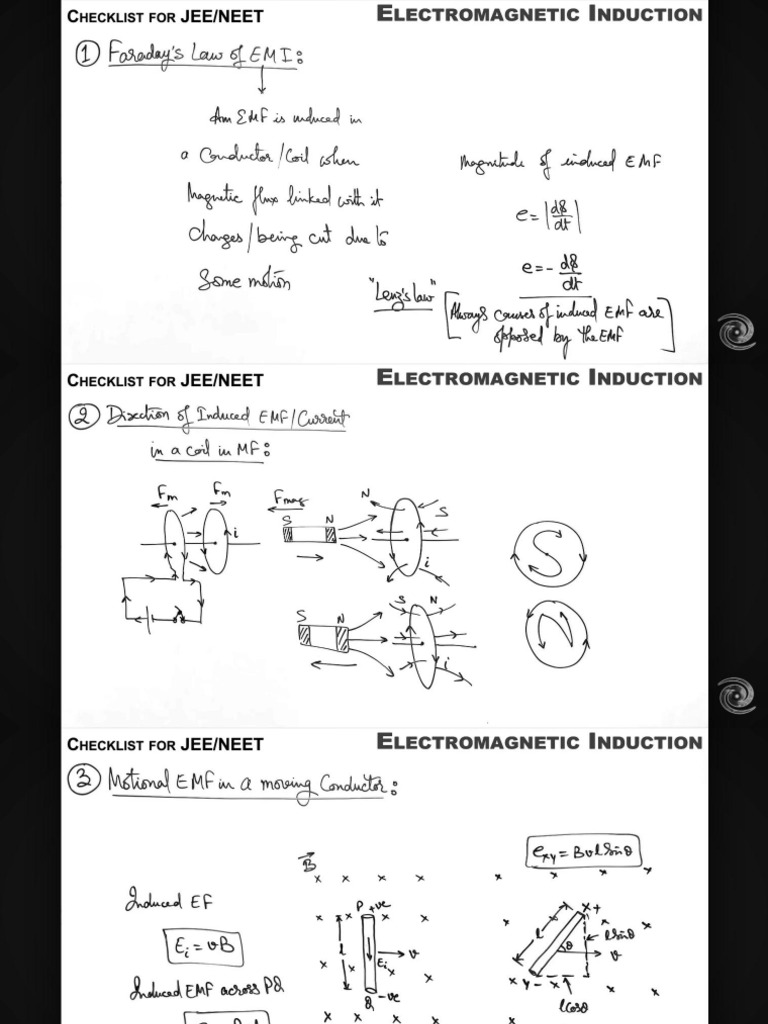 CHECKLIST FOR JEE/NEET
ELECTROMAGNETIC INDUCTION
① Faraday's Law of EMI:
An EMF is induced in
a Conductor/Coil when
Magnetic flux linked with it
Changes/being cut due to
Some motion
Magnitude of induced EMF
e = |dϕ/dt|
e = - dϕ/dt
"Lenz's law"
[Always causes of induced EMF are
opposed by the EMF]
CHECKLIST FOR JEE/NEET
ELECTROMAGNETIC INDUCTION
② Direction of Induced EMF/Current
in a coil in MF:
Fm
Fm
i
Fmag
S N
N
S
i
S N
S N
i
S
N
CHECKLIST FOR JEE/NEET
ELECTROMAGNETIC INDUCTION
③ Motional EMF in a moving Conductor:
Induced EF
Ei = vB
Induced EMF across PQ
B
P +ve
l
Ei
v
Q -ve
exy = Bvl Sinθ
X+
l
θ
lSinθ
v
Y-
lCosθ